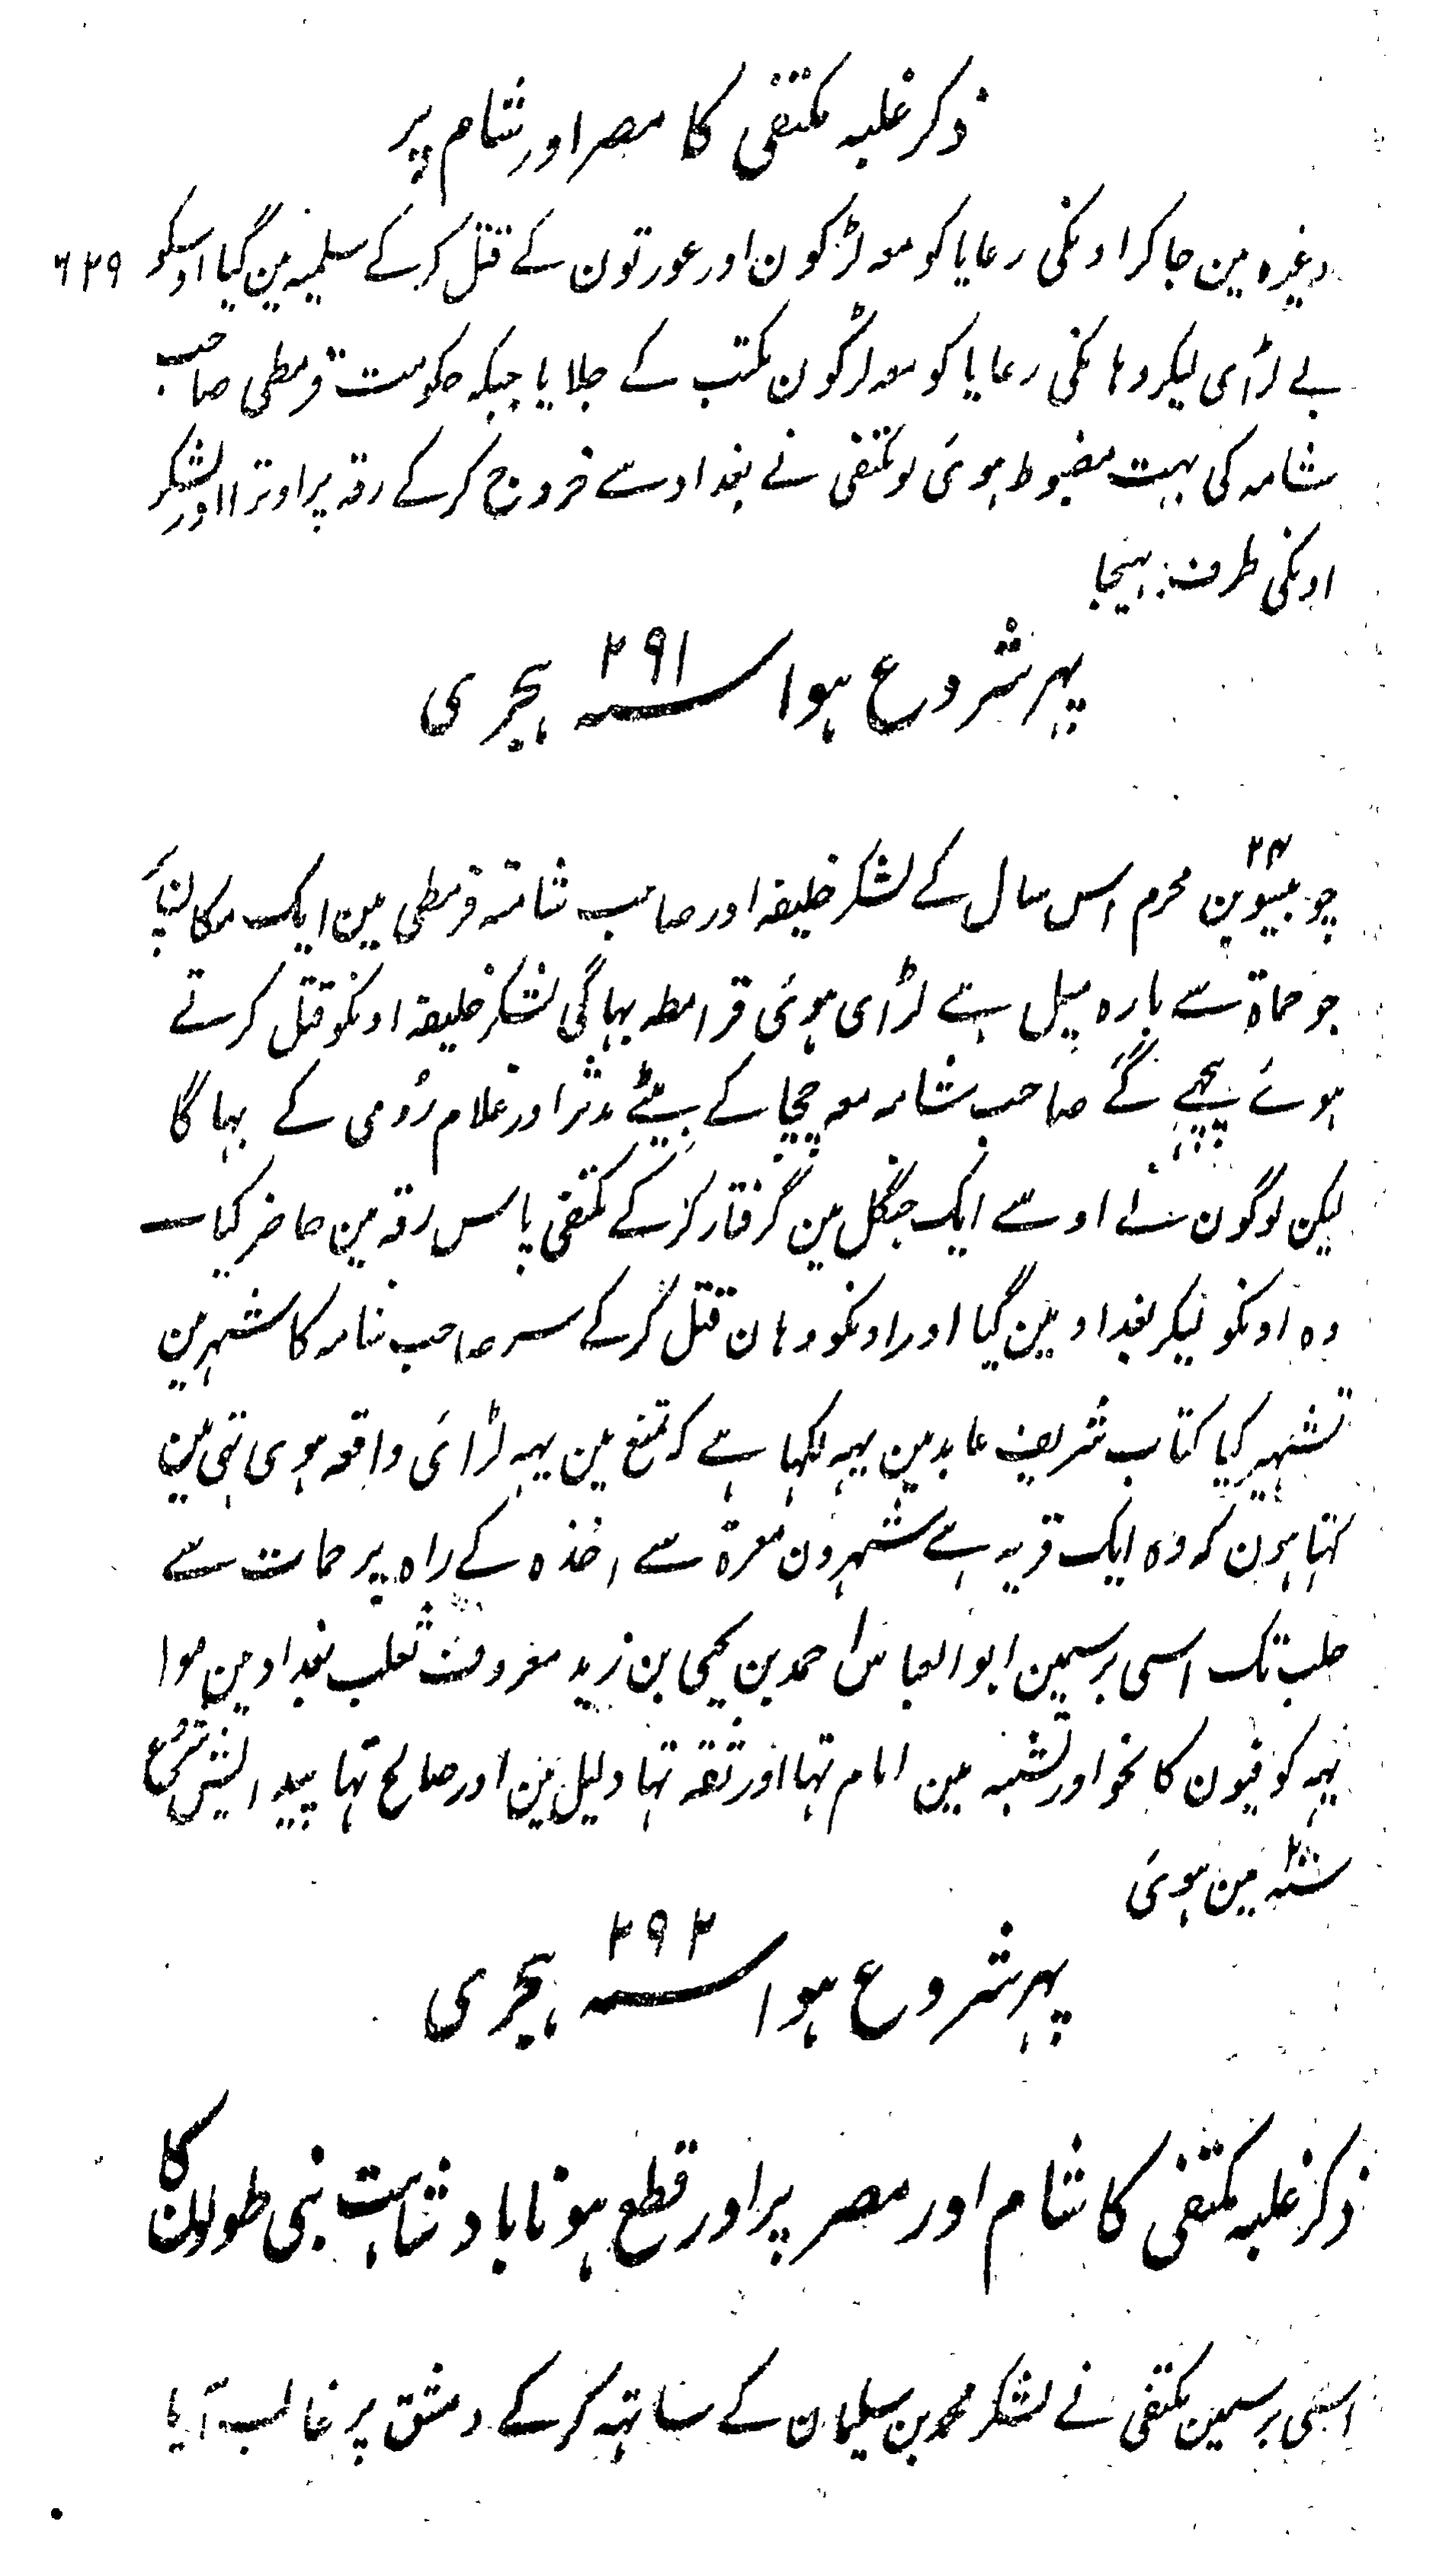 ذکر غلبہ مکتفی کا مصر اور شام پر
وغیرہ مین جاکر اونکی رعایا کو معہ لڑکون اور عورتون کے قتل کرکے سلمیہ مین گیا اوسکو ٦٢٩
بے لڑای لیکر وہانکی رعایا کو معہ لڑکون مکتب کے جلایا جبکہ حکومت قرمطی صاحب
شامہ کی بہت مضبوط ہوئی تو مکتفی نے بغداد سے خروج کرکے رقہ پر اوترا اور لشکر
اونکی طرف بہیجا
پہر شروع ہوا سنہ ٢٩١ ہجری
چوبیسوین ٢٤ محرم اس سال کے لشکر خلیفہ اور صاحب شامہ قرمطی مین ایک مکان پر
جو حماۃ سے بارہ میل ہے لڑای ہوئی قرامطہ بہاگی لشکر خلیفہ اونکو قتل کرتے
ہوئے پیچہے گئے صاحب شامہ معہ چچا کے بیٹے مدثر اور غلام رومی کے بہاگا
لیکن لوگون نے اوسے ایک جنگل مین گرفتار کرکے مکتفی پاس رقہ مین حاضر کیا
وہ اونکو لیکر بغداد مین گیا اور اونکو وہان قتل کرکے سر صاحب شامہ کا شہر مین
تشہیر کیا کتاب شریف عابد مین یہہ لکہا ہے کہ تمنع مین یہہ لڑائی واقعہ ہوی تہی مین
کہتا ہون کہ وہ ایک قریہ ہے شہرون معرۃ سے اخذہ کے راہ پر حمات سے
حلب تک اسی برسمین ابو العباس احمد بن یحیی بن زید معروف ثعلب بغداد مین موا
یہہ کوفیون کا نحو اور لغت مین امام تہا اور ثقہ تہا دلیل مین اور صالح تہا پیدایش شروع
سنہ ٢٠٠ مین ہوئی
پہر شروع ہوا سنہ ٢٩٢ ہجری
ذکر غلبہ مکتفی کا شام اور مصر پر اور قطع ہونا بادشاہت بنی طولون کا
اسی برسمین مکتفی نے لشکر محمد بن سلیمان کے ساتہہ کرکے دمشق پر غالب آیا